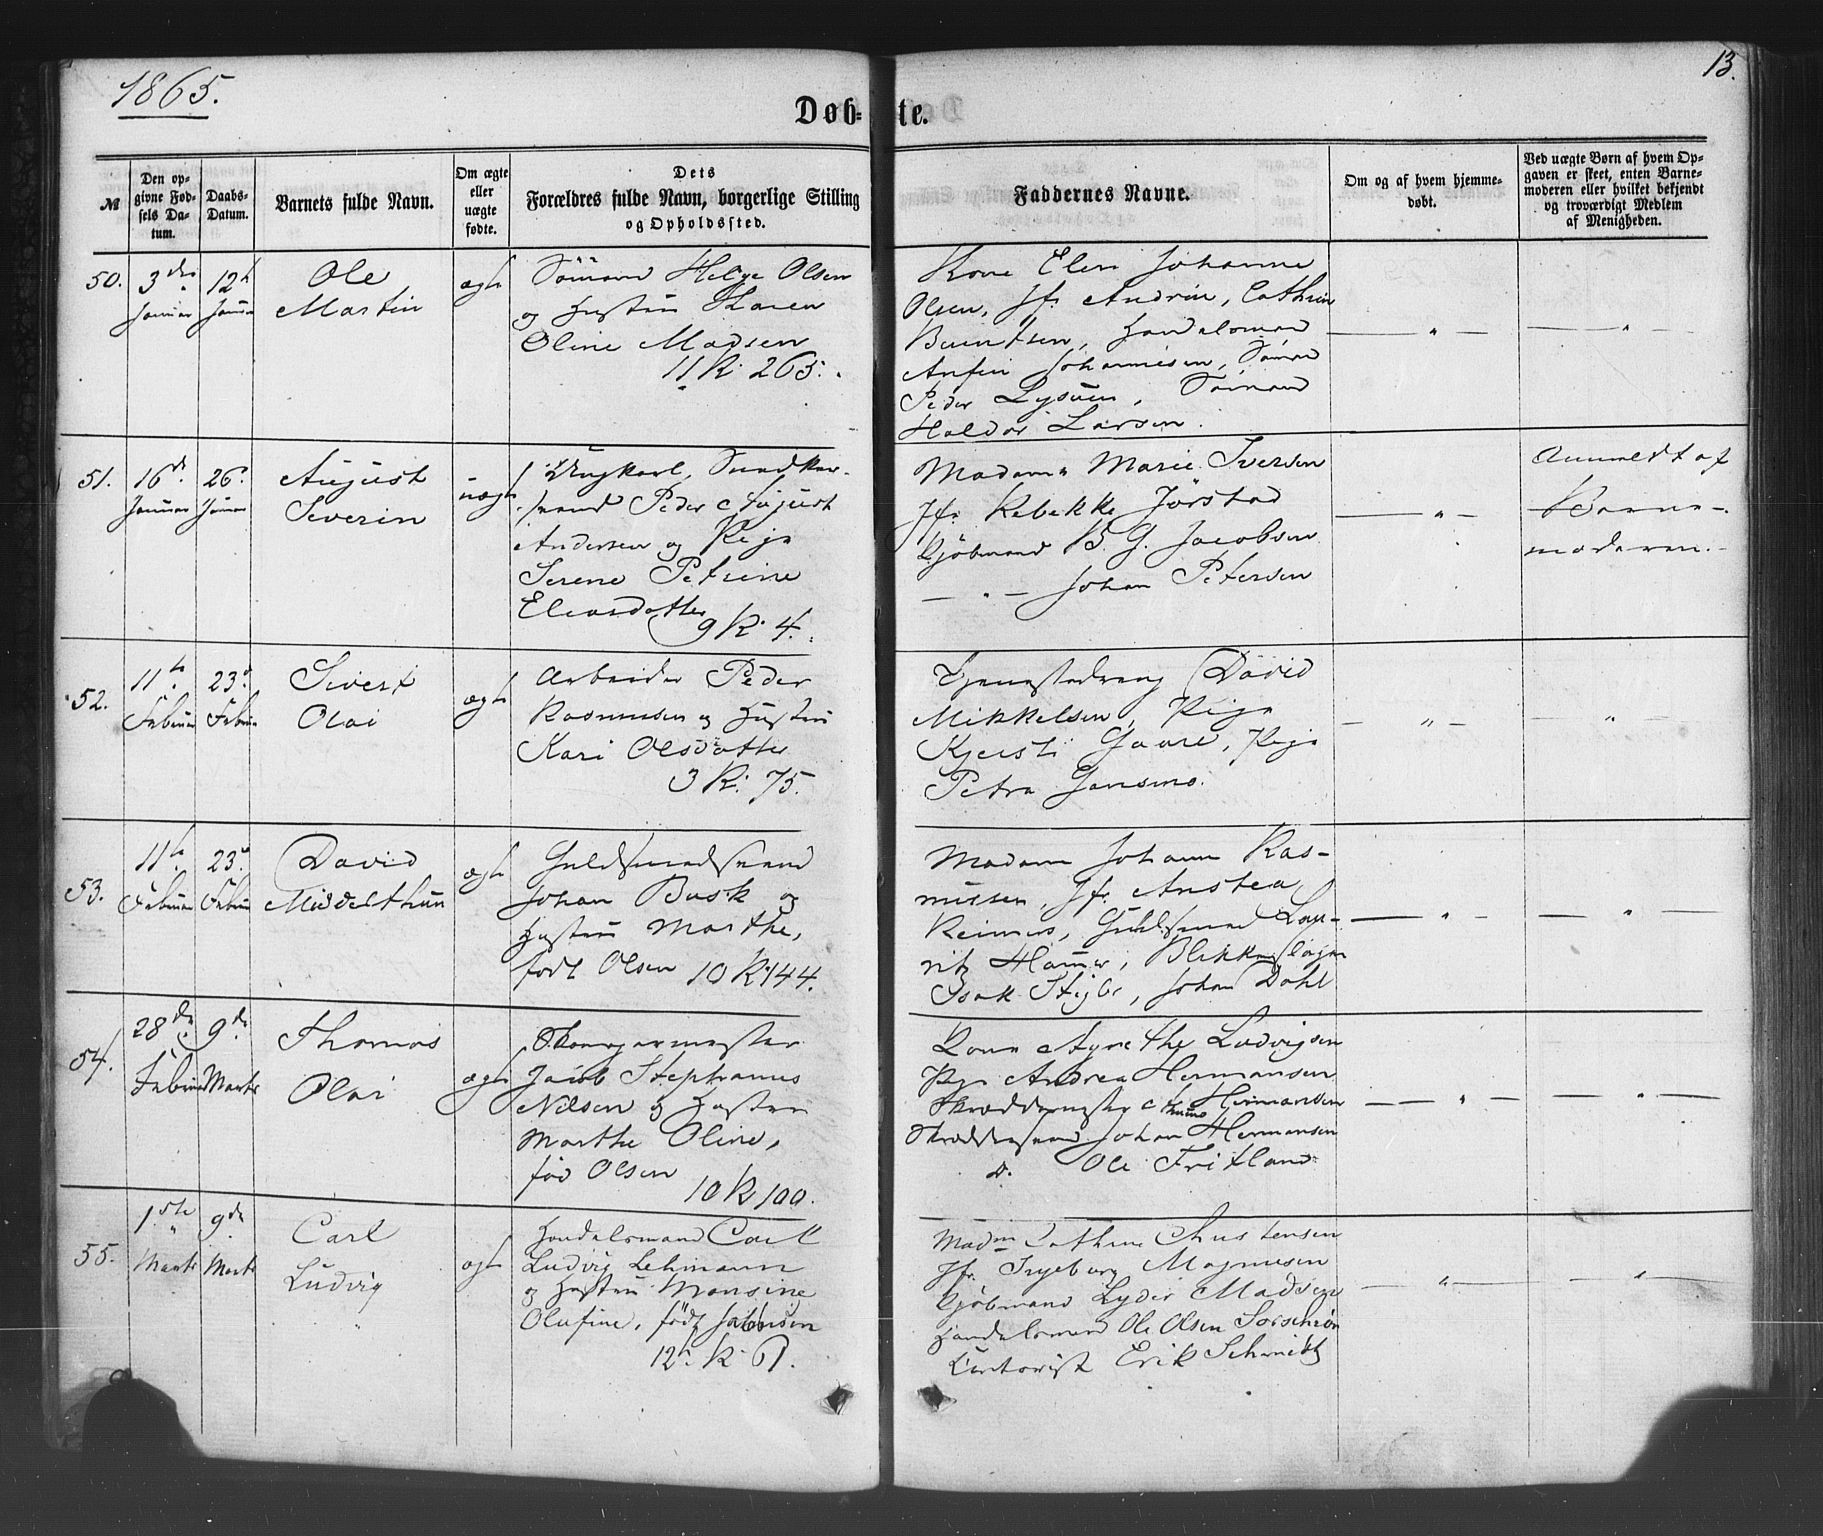 1865.
13.
Døb-te.
№
Den op-
givne Fød-
sels Da-
tum.
Daabs-
Datum.
Barnets fulde Navn.
Om ægte
eller
uægte
fødte.
Dets
Forældres fulde Navn, borgerlige Stilling
og Opholdssted.
Faddernes Navne.
Om og af hvem hjemme-
døbt.
Ved uægte Børn af hvem Op-
gaven er skeet, enten Barne-
moderen eller hvilket bekjendt
og troværdigt Medlem
af Menigheden.
50.
3die
Januar
12te
Januar
Ole
Martin
ægte
Sømand Helge Olsen
og Hustru Karen
Oline Madsen
11 R. 265.
Kone Elen Johanne
Olsen, Jfr. Andrine, Cathrin
Berntsen, Handelsmand
Anfin Johannesen, Sømand
Peder Lysøen, Sømand
Haldor Larsen.
— " —
— " —
51.
16de
Januar
26de
Januar
August
Severin
uægte
Ungkarl, Smedkar-
svend Peder August
Andersen og Pige
Serene Petrine
Eliasdatter
9 R. 4.
Madame Marie Iversen
Jfr. Rebekke Jørstad
Kjøbmand B. G. Jacobsen
— " — Johan Petersen
— " —
Anmeldt af
Barne-
moderen.
52.
11te
Februar
23de
Februar
Sivert
Olai
ægte
Arbeider Peder
Rasmussen og Hustru
Kari Olsdatter
3 R. 75.
Tjenestedreng David
Mikkelsen, Pige
Kjersti Gaare, Pige
Petra Jansine.
— " —
— " —
53.
11te
Februar
23de
Februar
David
Middelthun
ægte
Guldsmedsvend
Johan Busk og
Hustru Marthe,
født Olsen 10 R. 144.
Madam Johann Ras-
mussen, Jfr. Anstea
Reimers, Guldsmed Lau-
ritz Hammer, Blikkenslager
Isak Stiglr, Johan Dahl
— " —
— " —
54.
28de
Februar
9de
Marts
Thomas
Olai
ægte
Skomagermester
Jacob Stephanus
Nilsen og Hustru
Marthe Oline,
fød Olsen
10 R. 100.
Kone Agnethe Ludvigsen
Pige Andrea Hermansen
Skræddermester Hermansen
Skræddersvend Johan Hermansen
D. Ole Fritland
— " —
— " —
55.
1ste
Marts
9de
Marts
Carl
Ludvig
ægte
Handelsmand Carl
Ludvig Lehmann
og Hustru Monsine
Olufine, født Jacobsen
12te R. 61.
Madm Cathrine Christensen
Jfr. Ingeborg Magnusen
Kjøbmand Lyder Madsen
Handelsmand Ole Olsen
Contorist Erik Schmidt
— " —
— " —